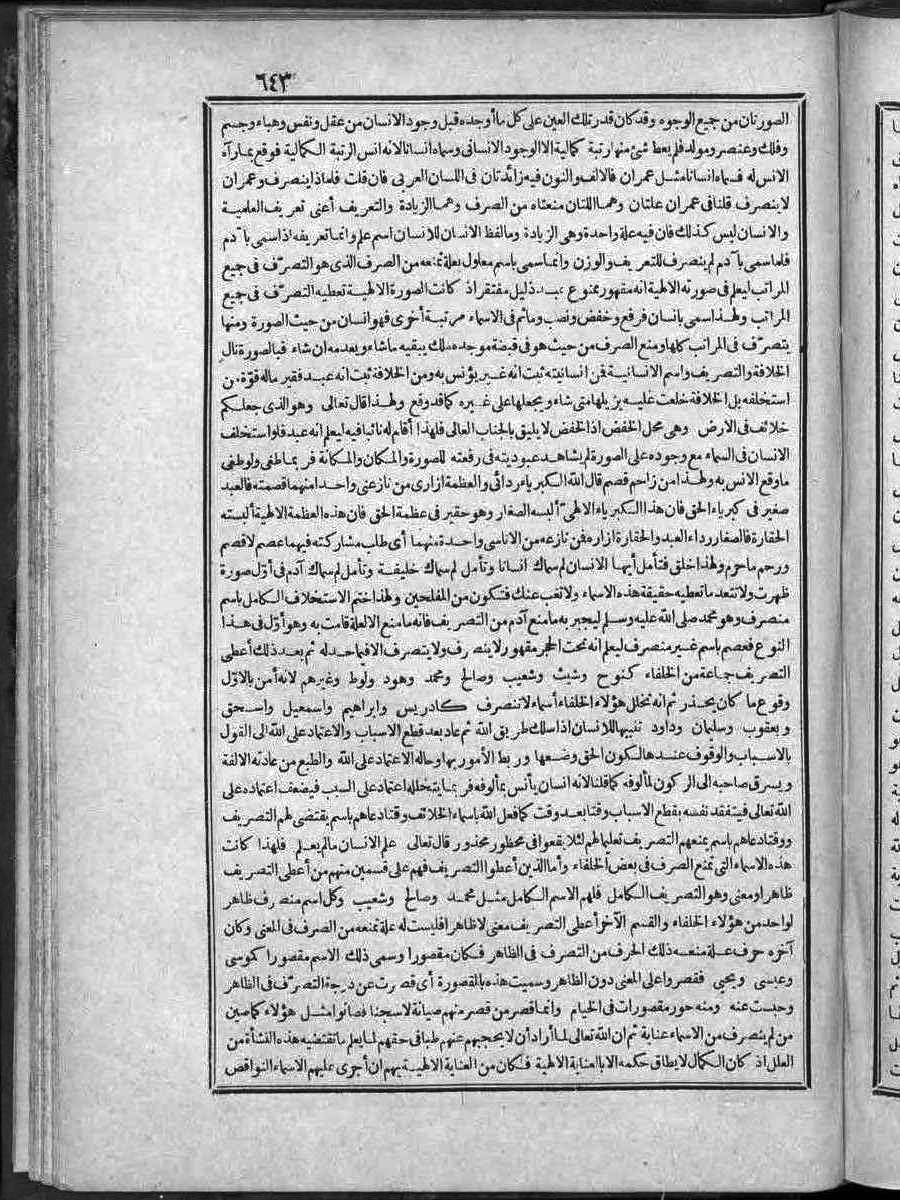 ٦٤٣
الصورتان من جميع الوجوه وقد كان قدر تلك العين على كل ما أوجده قبل وجود الانسان من عقل ونفس وهباء وجسم
وفلك وعنصر ومولد فلم يعط شئ منها رتبة كمالية الا الوجود الانسانى وسماه انسانا لانه انس الرتبة الكمالية فوقع بما رآه
الانس له فسماه انسانا مثل عمران فالالف والنون فيه زائدتان فى اللسان العربى فان قلت فلماذا ينصرف وعمران
لا ينصرف قلنا فى عمران علتان وهما اللتان منعتاه من الصرف وهما الزيادة والتعريف أعنى تعريف العلمية
والانسان ليس كذلك فان فيه علة واحدة وهى الزيادة وما لفظ الانسان للانسان اسم علم وانما تعريفه اذا سمى با ّدم
فلما سمى با ّدم لم ينصرف للتعريف والوزن وانما سمى باسم معلول بعلة تمنعه من الصرف الذى هو التصرّف فى جميع
المراتب ليعلم فى صورته الالهية انه مقهور ممنوع عبد ذليل مفتقر اذ كانت الصورة الالهية تعطيه التصرّف فى جميع
المراتب ولهذا سمى بانسان فرفع وخفض ونصب وما ثم فى الاسماء مرتبة أخرى فهو انسان من حيث الصورة ومنها
يتصرّف فى المراتب كلها ومنع الصرف من حيث هو فى قبضة موجده ملك يبقيه ما شاء ويعدمه ان شاء فبالصورة نال
الخلافة والتصريف واسم الانسانية فمن انسانيته ثبت انه غير يؤنس به ومن الخلافة ثبت انه عبد فقير ماله قوّة من
استخلفه بل الخلافة خلعت عليه يزيلها متى شاء ويجعلها على غيره كما قد وقع ولهذا قال تعالى وهو الذى جعلكم
خلائف فى الارض وهى محل الخفض اذ الخفض لا يليق بالجناب العالى فلهذا أقام له نائبا فيه ليعلم انه عبد فلو استخلف
الانسان فى السماء مع وجوده على الصورة لم يشاهد عبوديته فى رفعته للصورة والمكان والمكانة فربما طغى ولو طغى
ما وقع الانس به ولهذا من زاحم قصم قال الله الكبرياء ردائى والعظمة ازارى من نازعنى واحدا منهما قصمته فالعبد
صغير فى كبرياء الحق فان هذا الكبرياء الالهىّ ألبسه الصغار وهو حقير فى عظمة الحق فان هذه العظمة الالهية ألبسته
الحقارة فالصغار رداء العبد والحقارة ازاره فمن نازعه من الاناسى واحدة منهما أى طلب مشاركته فيهما عصم لا قصم
ورحم ما حوم ولهذا خلق فتأمل أيها الانسان لم سماك انسانا وتأمل لم سماك خليفة وتأمل لم سماك آدم فى أوّل صورة
ظهرت ولا تتعد ما تعطيه حقيقة هذه الاسماء ولا تغب عنك فتكون من المفلحين ولهذا ختم الاستخلاف الكامل باسم
منصرف وهو محمد صلى الله عليه وسلم ليجبر به ما منع آدم من التصريف فانه ما منع الا لعلة قامت به وهو أوّل فى هذا
النوع فعصم باسم غير منصرف ليعلم انه تحت الحجر مقهور لا ينصرف ولا يتصرف الا فيما حد له ثم بعد ذلك أعطى
التصريف جماعة من الخلفاء كنوح وشيث وشعيب وصالح ومحمد وهود ولوط وغيرهم لانه أمن بالاوّل
وقوع ما كان يحذر ثم انه تخلل هؤلاء الخلفاء أسماء لا تنصرف كادريس وابراهيم واسمعيل واسحق
ويعقوب وسليمان وداود تنبيها للانسان اذا سلك طريق الله ثم عاد بعد قطع الاسباب والاعتماد على الله الى القول
بالاسباب والوقوف عندها لكون الحق وضعها وربط الأمور بها وحاله الاعتماد على الله والطبع من عادته الالفة
ويسرق صاحبه الى الركون لمألوفه كما قلنا لانه انسان يأنس بمألوفه فربما يتخلله اعتماد على السبب فيضعف اعتماده على
الله تعالى فيتفقد نفسه بقطع الاسباب وقتا بعد وقت كما فعل الله باسماء الخلائف وقتا دعاهم باسم يقتضى لهم التصريف
ووقتا دعاهم باسم يمنعهم التصريف تعليما لهم لئلا يقعوا فى محظور محذور قال تعالى علم الانسان ما لم يعلم فلهذا كانت
هذه الاسماء التى تمنع الصرف فى بعض الخلفاء وأما الذين أعطوا التصريف فهم على قسمين منهم من أعطى التصريف
ظاهرا ومعنى وهو التصريف الكامل فلهم الاسم الكامل مثل محمد وصالح وشعيب وكل اسم منصرف ظاهر
لواحد من هؤلاء الخلفاء والقسم الآخر أعطى التصريف معنى لا ظاهرا فليست له علة تمنعه من الصرف فى المعنى وكان
آخره حرف علة منعه ذلك الحرف من التصرف فى الظاهر فكان مقصورا وسمى ذلك الاسم مقصورا كموسى
وعيسى ويحيى فقصروا على المعنى دون الظاهر وسميت هذه بالمقصورة أى قصرت عن درجة التصرّف فى الظاهر
وحبست عنه ومنه حور مقصورات فى الخيام وانما قصر من قصر منهم صيانة لا سجنا فصانوا مثل هؤلاء كما صين
من لم ينصرف من الاسماء عناية ثم ان الله تعالى لما أراد أن لا يحجبهم عنهم طبا فى حقهم لما يعلم ما تقتضيه هذه النشأة من
العلل اذ كان الكمال لا يطاق حكمه الا بالعناية الالهية فكان من العناية الالهية بهم ان أجرى عليهم الاسماء النواقض